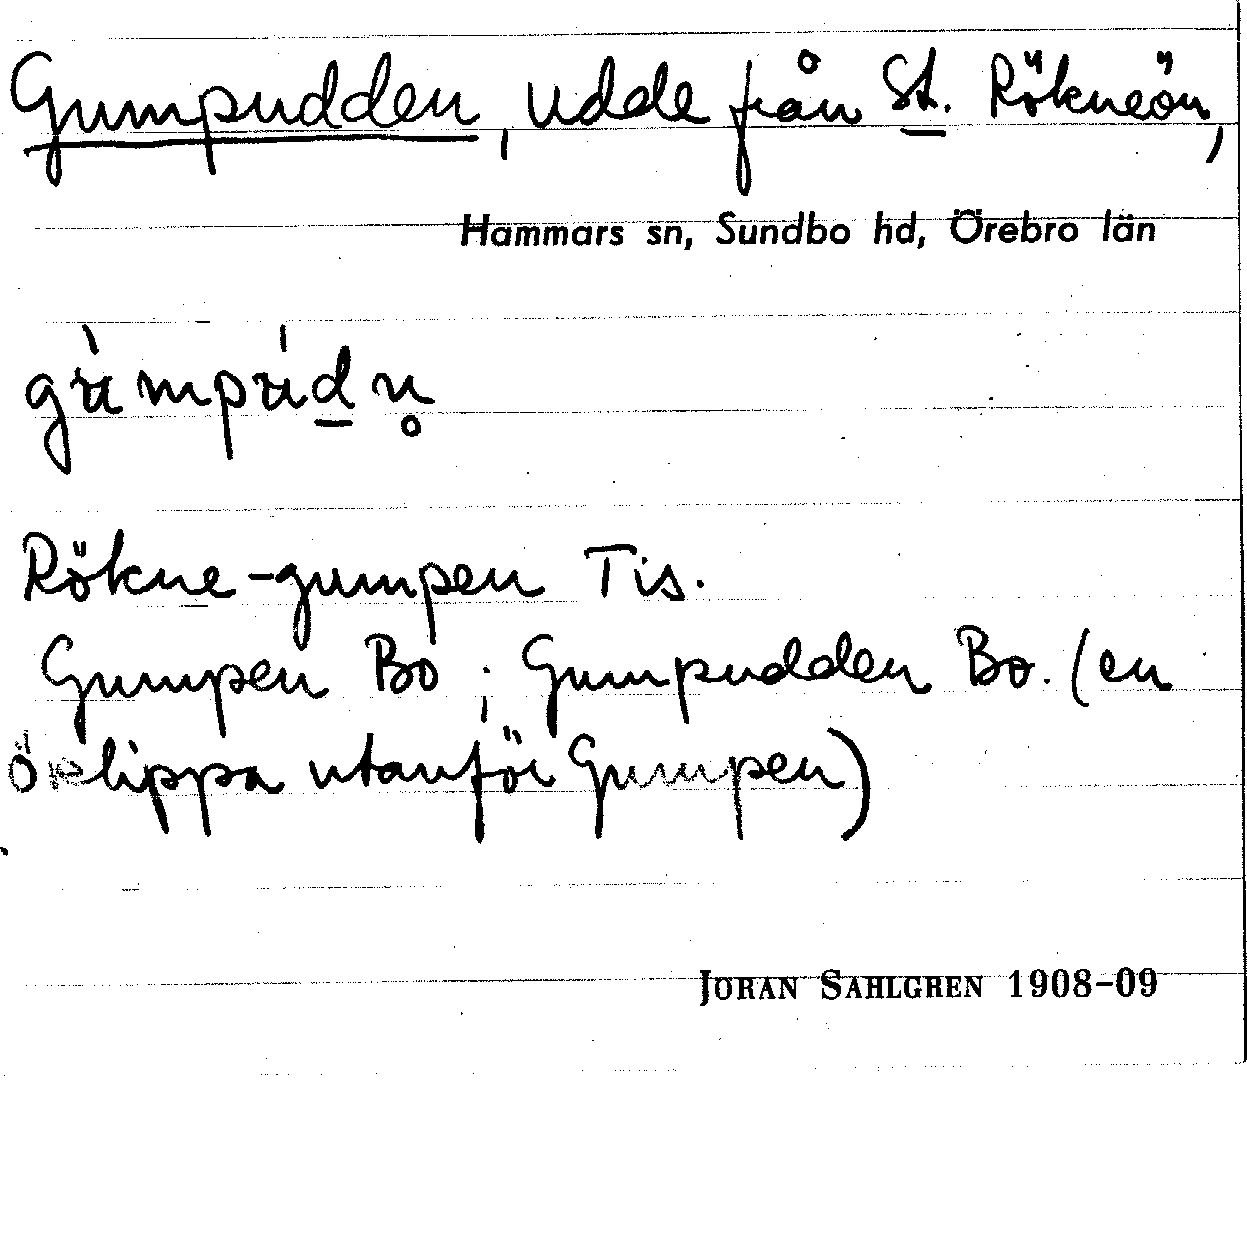 Gumpudden, udde från St. Rökneön,
Hammars sn, Sundbo hd, Örebro län
gùmpúd̲n̥
Rökne-gumpen Tis.
Gumpen Bo; Gumpudden Bo. (en
öklippa utanför Gumpen)
JÖRAN SAHLGREN 1908-09